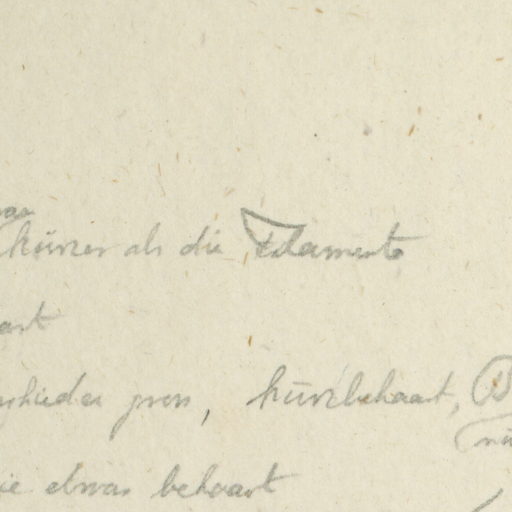 kürzer als die Filamente
art
gross, kurzbehaart,
etwas behaart